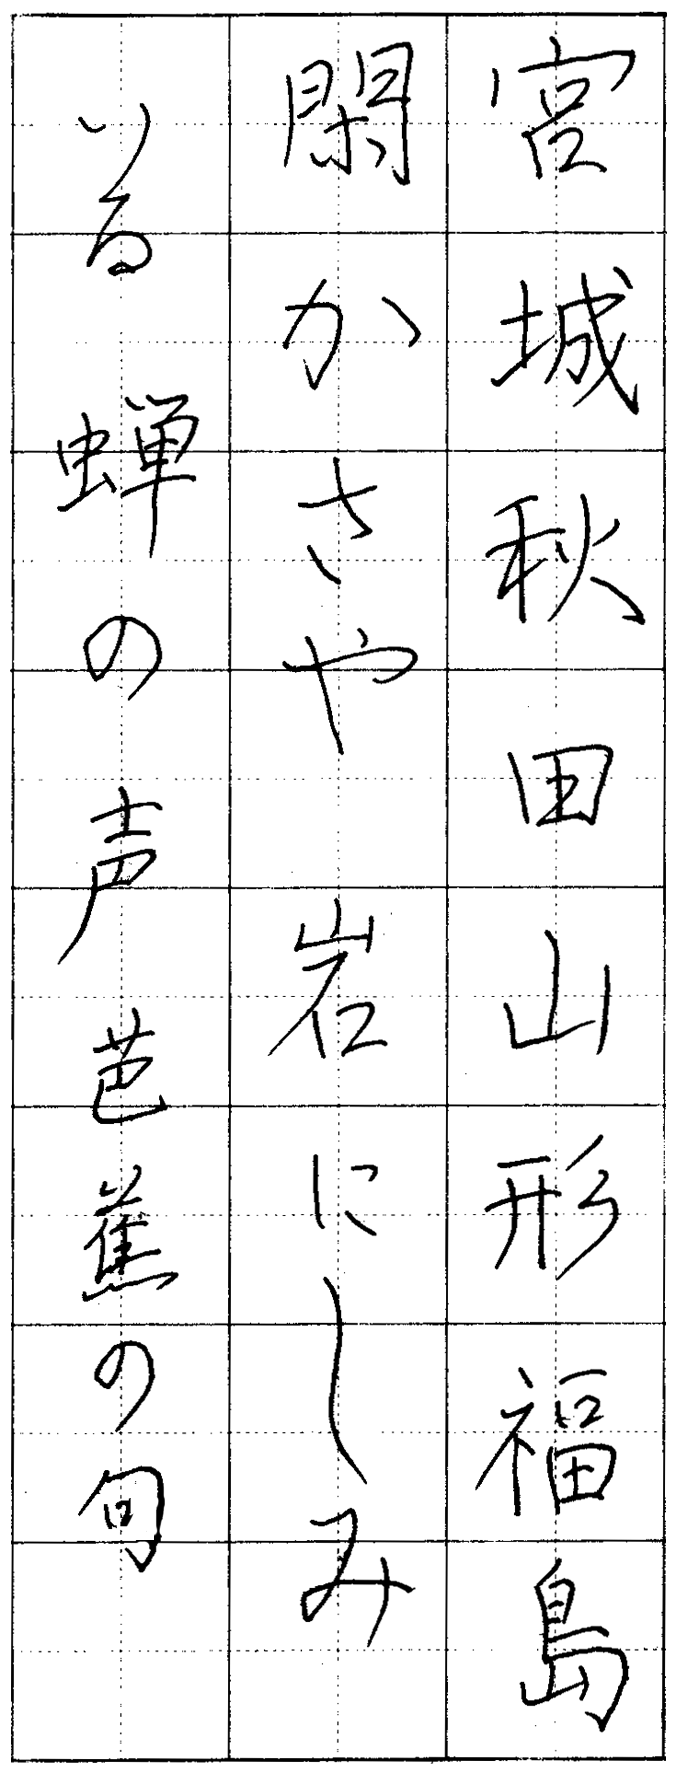 宮城秋田山形福島
閑かさや岩にしみ
いる蝉の声芭蕉の句